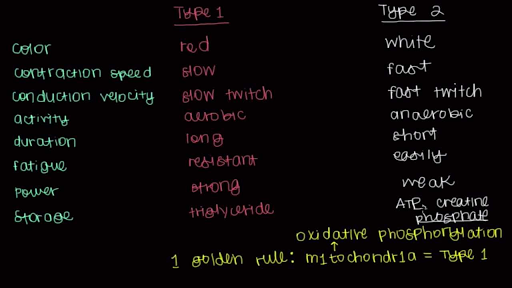 Type 1 Type 2
color red white
contraction speed slow fast
conduction velocity slow twitch fast twitch
activity aerobic anaerobic
duration long short
fatigue resistant easily
power strong weak
storage triglyceride ATP, creatine
phosphate
oxidative phosphorylation
1 golden rule: m1tochondr1a = Type 1